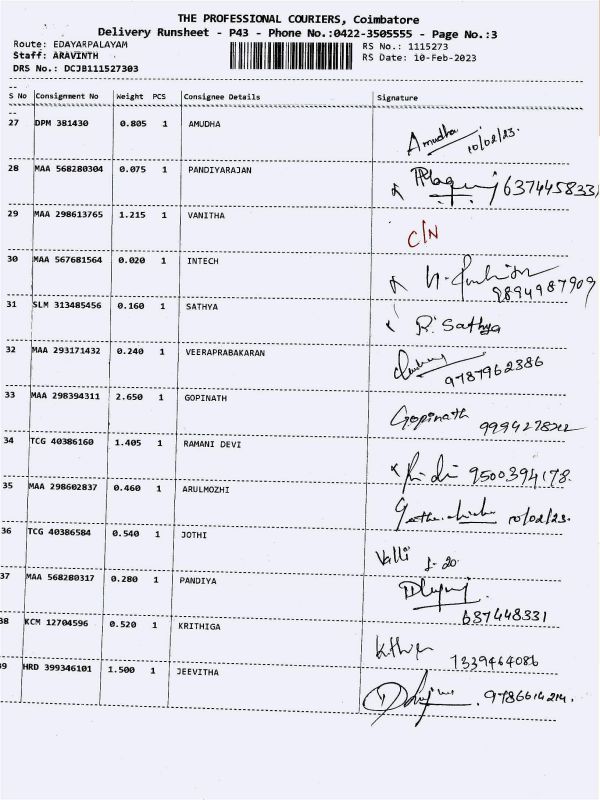 THE PROFESSIONAL COURIERS, Coimbatore
Delivery Runsheet - P43 - Phone No.:0422-3505555 - Page No.:3
Route: EDAYARPALAYAM RS No.: 1115273
Staff: ARAVINTH RS Date: 10-Feb-2023
DRS No.: DCJB111527303
S No Consignment No Weight PCS Consignee Details Signature
27 DPM 381430 0.805 1 AMUDHA Amudha 10/02/23.
28 MAA 568280304 0.075 1 PANDIYARAJAN 637445833
29 MAA 298613765 1.215 1 VANITHA C/N
30 MAA 567681564 0.020 1 INTECH
9894987909
31 SLM 313485456 0.160 1 SATHYA R. Sathya
32 MAA 293171432 0.240 1 VEERAPRABAKARAN
9787962386
33 MAA 298394311 2.650 1 GOPINATH Gopinath
34 TCG 40386160 1.405 1 RAMANI DEVI 9500394178.
35 MAA 298602837 0.460 1 ARULMOZHI 10/02/23.
36 TCG 40386584 0.540 1 JOTHI Valli
37 MAA 568280317 0.280 1 PANDIYA
637448331
38 KCM 12704596 0.520 1 KRITHIGA
1339464086
39 HRD 399346101 1.500 1 JEEVITHA 9786614214.